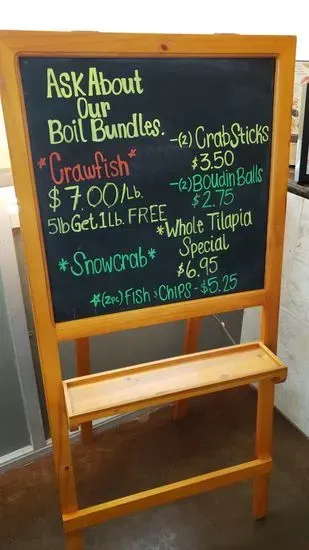 Ask About
Our
Boil Bundles.
*Crawfish*
$7.00/lb.
5lb Get 1lb. FREE
*Snowcrab*
-(2) Crab Sticks
$3.50
-(2) Boudin Balls
$2.75
*Whole Tilapia
Special
$6.95
*(2pc) Fish & Chips - $5.25